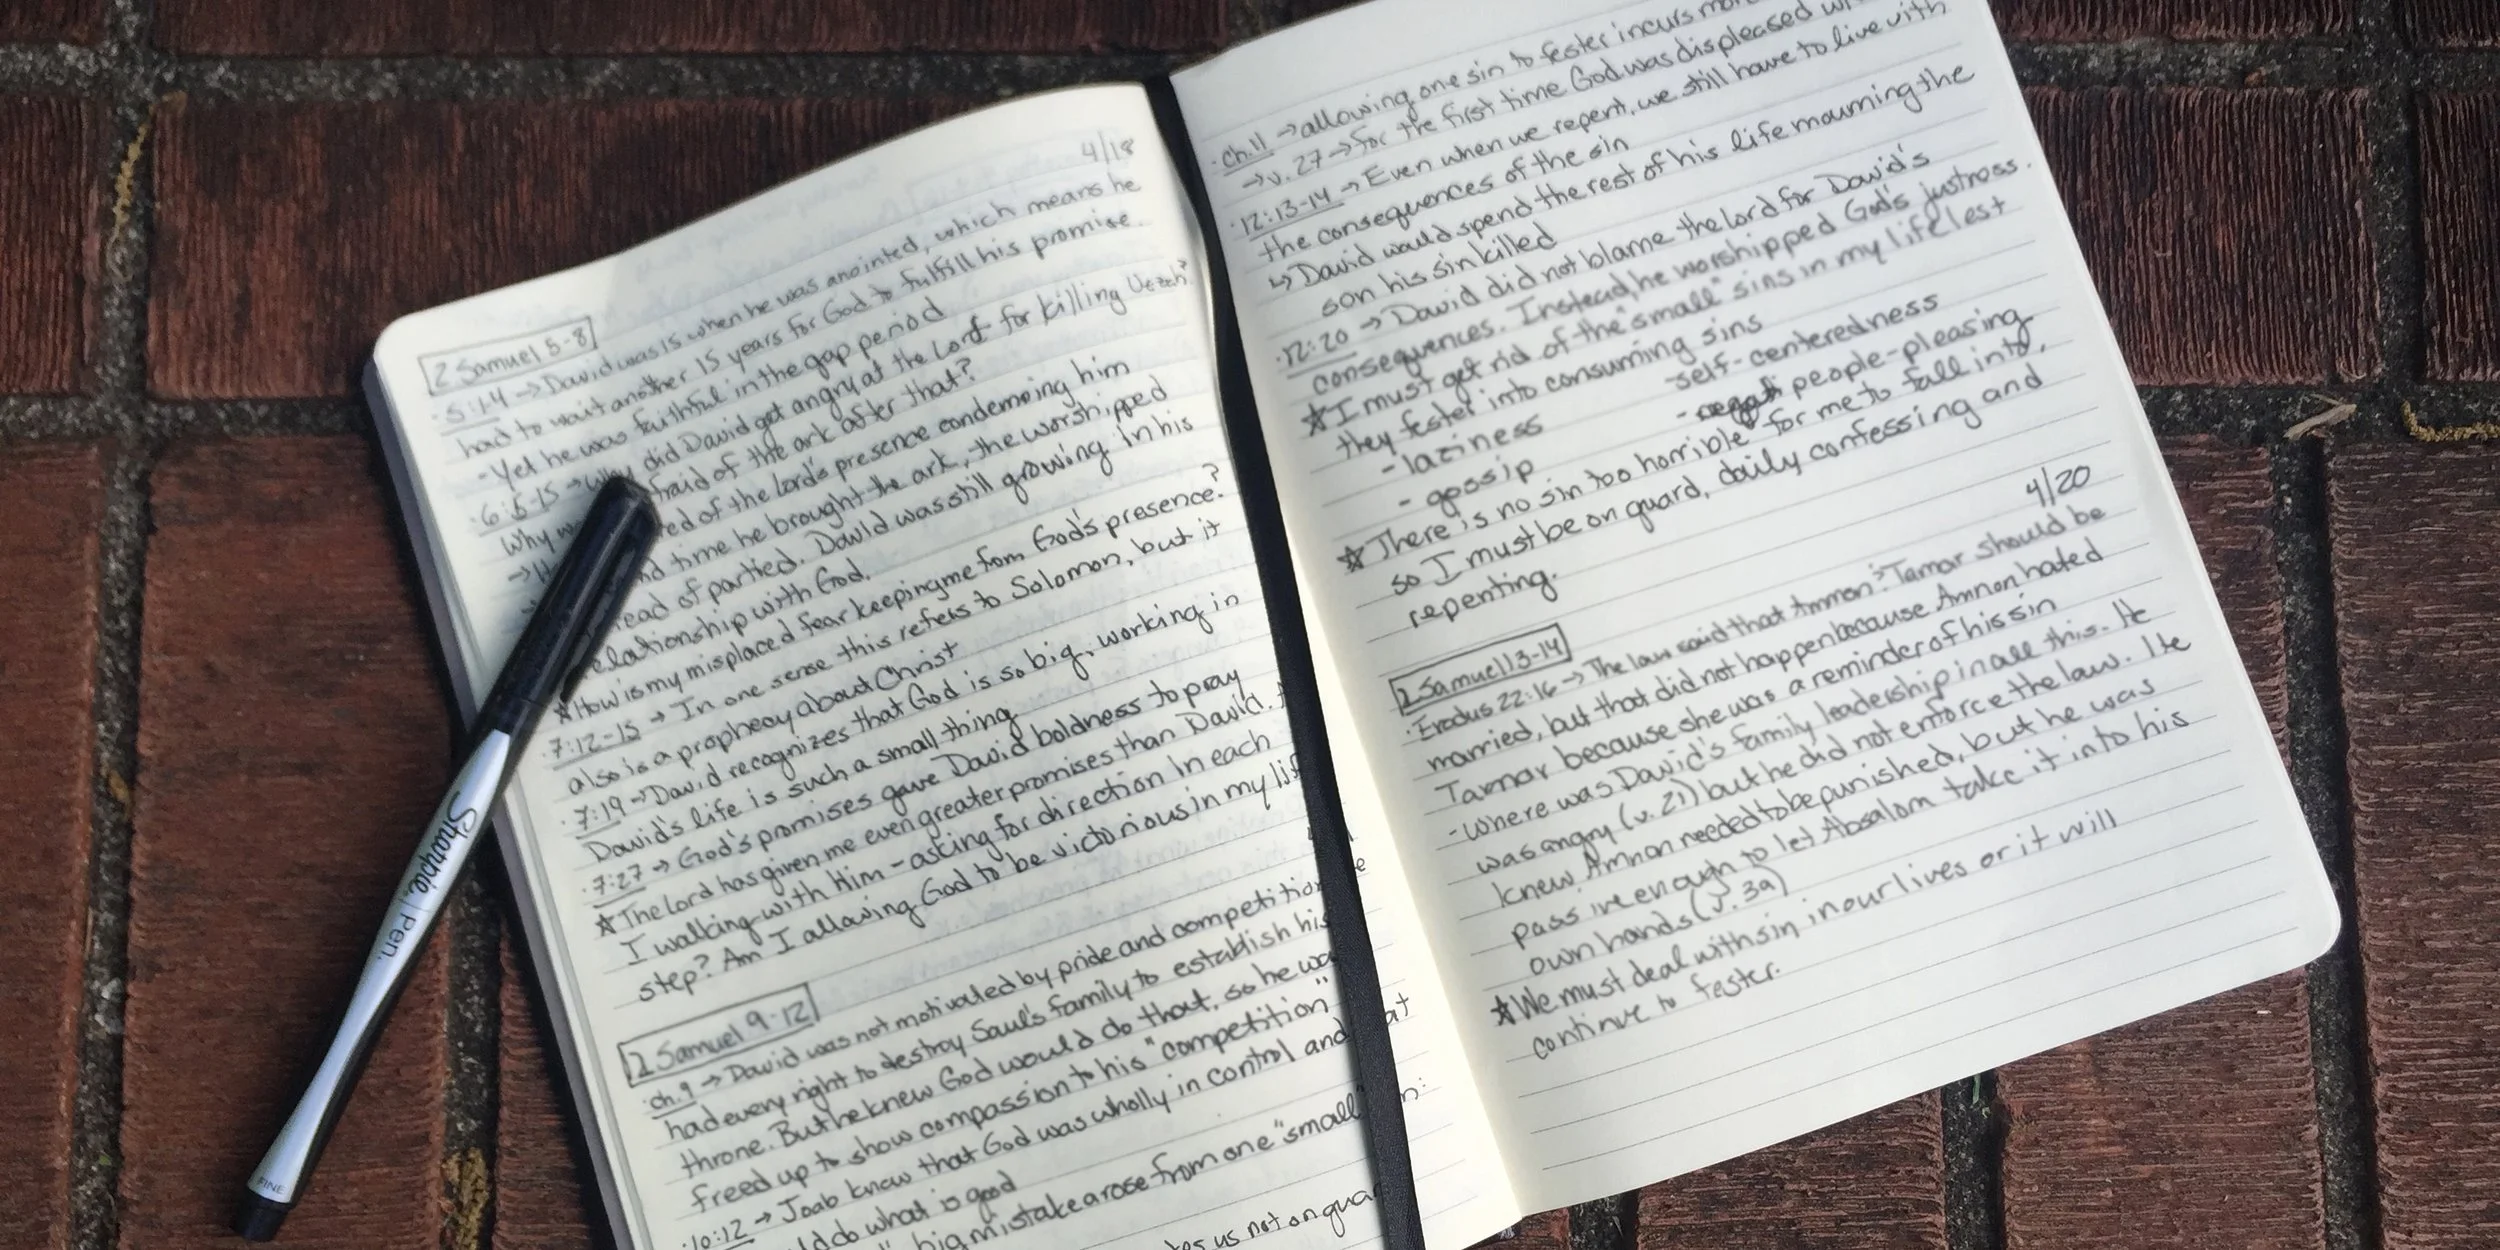 4/18
2 Samuel 5-8
· 5:1-4 → David was 15 when he was anointed, which means he
had to wait another 15 years for God to fulfill his promise.
- Yet he was faithful in the gap period
· 6:5-15 → Why did David get angry at the Lord for killing Uzzah?
Why afraid of the ark after that?
→ of the Lord's presence condemning him
time he brought the ark, the worshipped
of partied. David was still growing in his
relationship with God.
☆ How is my misplaced fear keeping me from God's presence?
· 7:12-15 → In one sense this refers to Solomon, but it
also is a prophecy about Christ
· 7:19 → David recognizes that God is so big, working in
David's life is such a small thing
· 7:27 → God's promises gave David boldness to pray
☆ The Lord has given me even greater promises than David. A
I walking with Him - asking for direction in each
step? Am I allowing God to be victorious in my lif
2 Samuel 9-12
· ch. 9 → David was not motivated by pride and competition. He
had every right to destroy Saul's family to establish his
throne. But he knew God would do that, so he was
freed up to show compassion to his "competition"
· 10:12 → Joab knew that God was wholly in control and that
do what is good
big mistake arose from one "small"
us not on guar
· ch. 11 → allowing one sin to fester incurs more
→ v. 27 → for the first time God was displeased
· 12:13-14 → Even when we repent, we still have to live with
the consequences of the sin
↳ David would spend the rest of his life mourning the
son his sin killed
· 12:20 → David did not blame the Lord for David's
consequences. Instead, he worshipped God's justness.
☆ I must get rid of the "small" sins in my life lest
they fester into consuming sins
- laziness - self-centeredness
- gossip - people-pleasing
☆ There is no sin too horrible for me to fall into,
so I must be on guard, daily confessing and
repenting.
4/20
2 Samuel 13-14
· Exodus 22:16 → The law said that Amnon? Tamar should be
married, but that did not happen because Amnon hated
Tamar because she was a reminder of his sin
- Where was David's family leadership in all this. He
was angry (v. 21) but he did not enforce the law. He
knew Amnon needed to be punished, but he was
passive enough to let Absalom take it into his
own hands (v. 39)
☆ We must deal with sin in our lives or it will
continue to fester.
Sharpie | Pen.
FINE